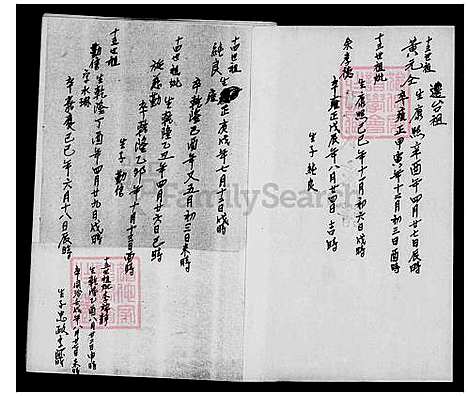 遷台祖
十三世祖
黃元全
生康熙辛酉年四月廿七日辰時
卒雍正甲寅年十二月初三日酉時
十三世祖妣
余
生康熙己巳年十一月初六日戌時
卒雍正戊辰年八月廿四日吉時
生子純良
十四世祖
純良
生雍正庚戌年七月十三日戌時
卒乾隆己酉年又五月初三日未時
十四世祖妣
勤
生乾隆乙丑年四月廿六日巳時
卒乾隆乙卯年十一月十三日酉時
生子勤信
十五世祖
勤信
生乾隆丁酉年四月廿九日戌時
卒嘉慶己巳年六月十八日辰時
十五世祖妣李
生乾隆乙酉八月廿二日申時
年八月廿七日未時
生子忠政
FamilySearch